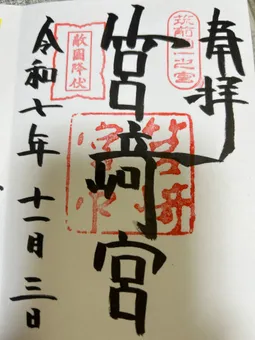 奉拝
筑前國一之宮
筥崎宮
敵國降伏
令和七年 十一月 三日